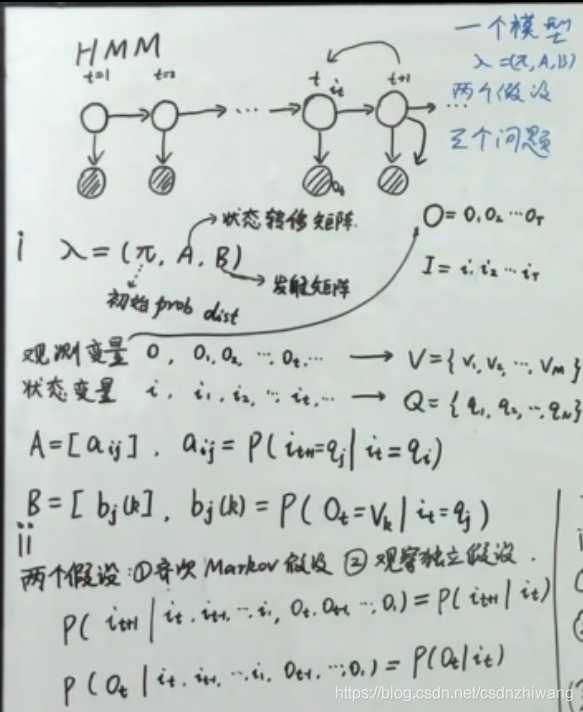 HMM
t=1 t=2 t iₜ t+1
oₜ
一个模型
λ=(π,A,B)
两个假设
三个问题
O=o₁o₂⋯o_T
I=i₁i₂⋯i_T
i λ=(π, A, B)
状态转移矩阵.
发射矩阵
初始prob dist
观测变量 o, o₁,o₂, ⋯,oₜ,⋯ → V={v₁,v₂,⋯,v_M}
状态变量 i, i₁,i₂,⋯,iₜ,⋯ → Q={q₁,q₂,⋯,q_N}
A=[a_ij], a_ij=P(iₜ₊₁=q_j|iₜ=q_i)
B=[b_j(k)], b_j(k)=P(oₜ=v_k|iₜ=q_j)
ii
两个假设:①齐次Markov假设 ②观察独立假设.
P(iₜ₊₁|iₜ,iₜ₋₁,⋯,i₁,oₜ,oₜ₋₁,⋯,o₁)=P(iₜ₊₁|iₜ)
P(oₜ|iₜ,iₜ₋₁,⋯,i₁,oₜ₋₁,⋯,o₁)=P(oₜ|iₜ)
https://blog.csdn.net/csdnzhiwang